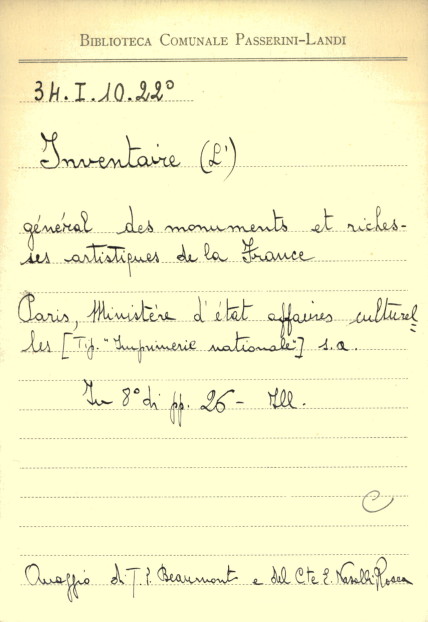 BIBLIOTECA COMUNALE PASSERINI-LANDI
34.I.10.22°
Inventaire (L')
général des monuments et riches-
ses artistiques de la France
Paris, Ministère d'état affaires culturel=
les [Tip. "Imprimerie nationale"] s.a.
In 8° di pp. 26 - Ill.
C
Omaggio di T. P. Beaumont e del C.te E. Nasalli-Rocca